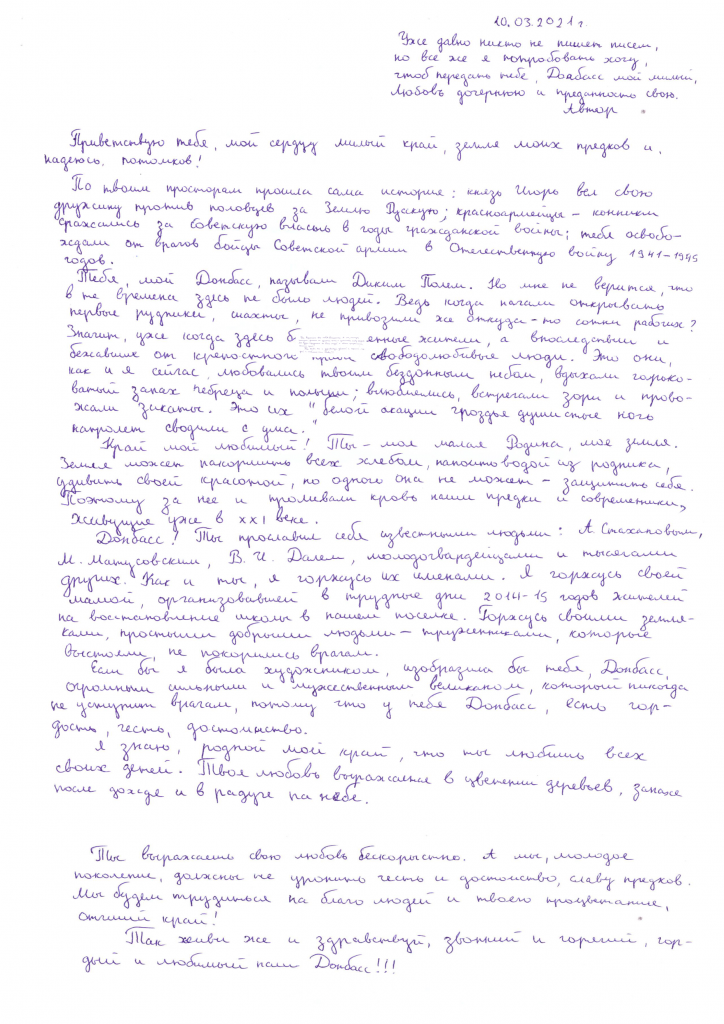 10.03.2021 г.
Уже давно никто не пишет писем,
но все же я попробовать хочу,
чтоб передать тебе, Донбасс мой милый,
Любовь дочернюю и преданность свою.
Автор
Приветствую тебя, мой сердцу милый край, земля моих предков и,
надеюсь, потомков!
По твоим просторам прошла сама история: князь Игорь вел свою
дружину против половцев за Землю Русскую; красноармейцы - конники
сражались за советскую власть в годы гражданской войны; тебя освобо-
ждали от врагов бойцы Советской армии в Отечественную войну 1941-1945
годов.
Тебя, мой Донбасс, называли Диким Полем. Но мне не верится, что
в те времена здесь не было людей. Ведь когда начали открывать
первые рудники, шахты, не привозили же откуда-то сотни рабочих?
Значит, уже тогда здесь б енные жители, а впоследствии и
бежавшие от крепостного свободолюбивые люди. Это они,
как и я сейчас, любовались твоим бездонным небом, вдыхали горько-
ватый запах чебреца и полыни; влюблялись, встречали зори и прово-
жали закаты. Это их "белой акации гроздья душистые ночь
напролет сводили с ума."
Край мой любимый! Ты - моя малая Родина, моя земля.
Земля может накормить всех хлебом, напоить водой из родника,
удивить своей красотой, но одного она не может - защитить себя.
Поэтому за нее и проливали кровь наши предки и современники,
живущие уже в XXI веке.
Донбасс! Ты прославил себя известными людьми: А. Стахановым,
М. Матусовским, В. И. Далем, молодогвардейцами и тысячами
других. Как и ты, я горжусь их именами. Я горжусь своей
мамой, организовавшей в трудные дни 2014-15 годов жителей
на восстановление школы в нашем поселке. Горжусь своими земля-
ками, простыми добрыми людьми - тружениками, которые
выстояли, не покорились врагам.
Если бы я была художником, изобразила бы тебя, Донбасс,
огромным сильным и мужественным великаном, который никогда
не уступит врагам, потому что у тебя Донбасс, есть гор-
дость, честь, достоинство.
Я знаю, родной мой край, что ты любишь всех
своих детей. Твоя любовь выражается в цветении деревьев, запахе
после дождя и в радуге на небе.
Ты выражаешь свою любовь бескорыстно. А мы, молодое
поколение, должны не уронить честь и достоинство, славу предков.
Мы будем трудиться на благо людей и твоего процветания,
отчий край!
Так живи же и здравствуй, звонкий и горький, гор-
дый и любимый нами Донбасс!!!